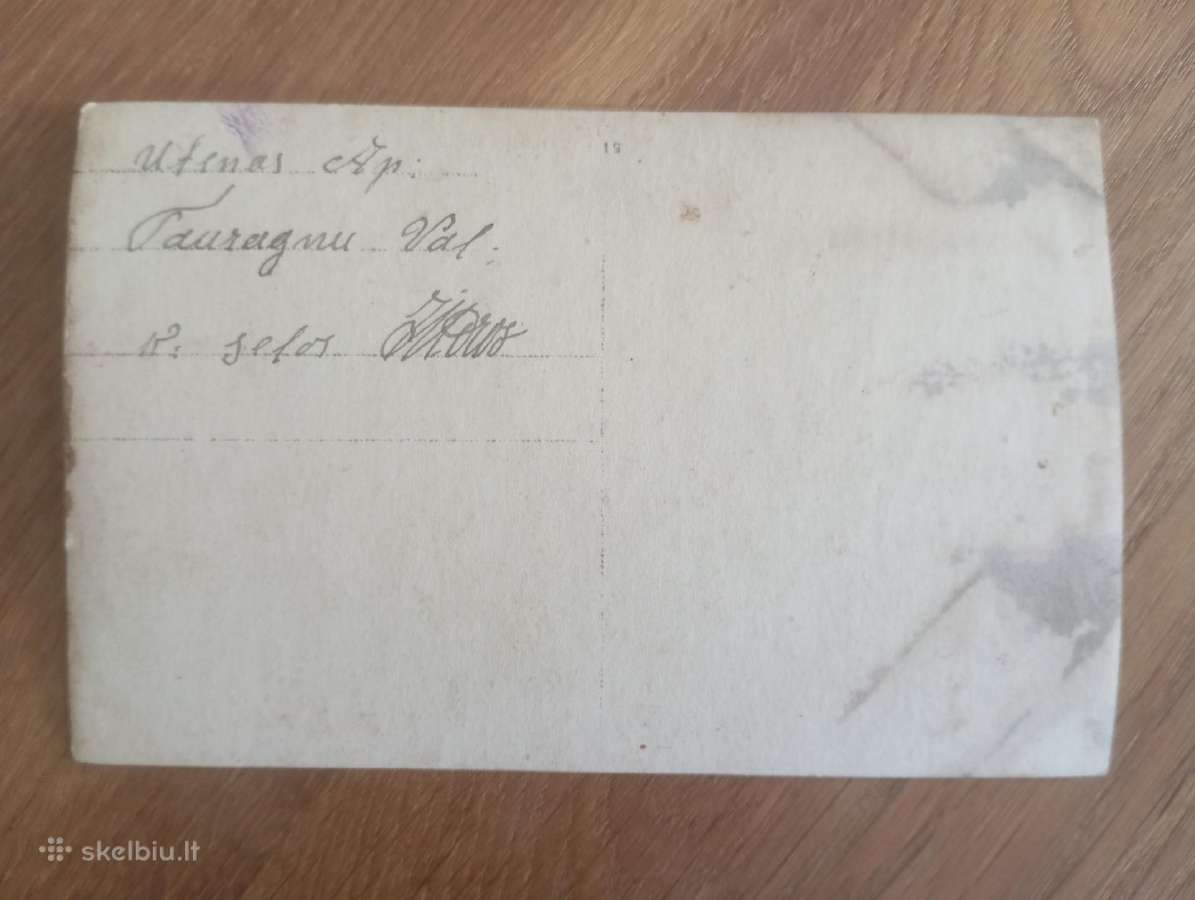 Utenos Ap:
Tauragnu Val.
v: sefos
19
skelbiu.lt